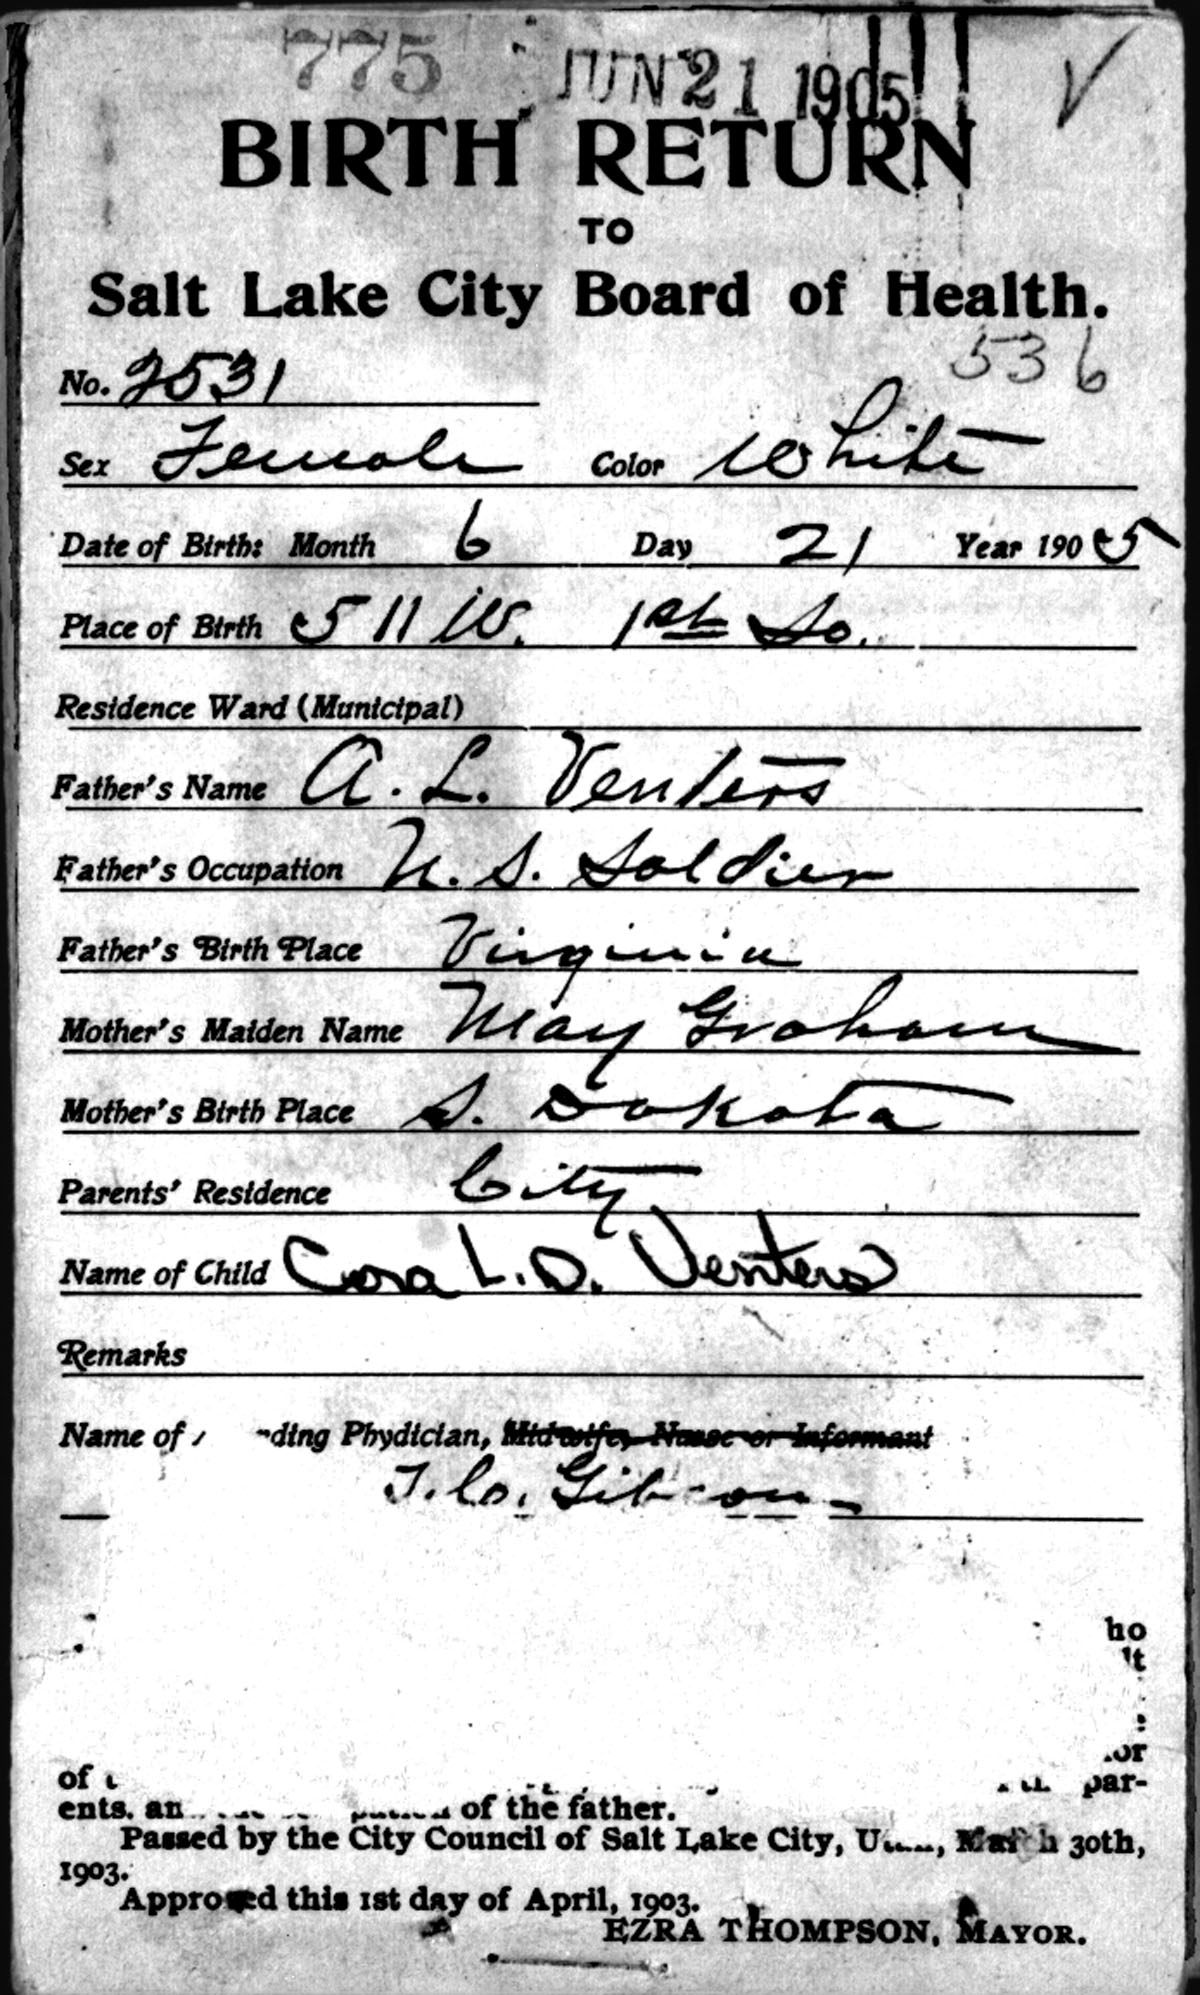 775 JUN 21 1905
BIRTH RETURN
TO
Salt Lake City Board of Health.
536
No. 2531
Sex Female Color White
Date of Birth: Month 6 Day 21 Year 1905
Place of Birth 511 W. 1st So.
Residence Ward (Municipal)
Father's Name A. L. Venters
Father's Occupation U. S. Soldier
Father's Birth Place Virginia
Mother's Maiden Name May Graham
Mother's Birth Place S. Dakota
Parents' Residence City
Name of Child Cora L. D. Venters
Remarks
Name of ding Phydician, Midwife, Nurse or Informant
T. Co. Gibson
ho
of par-
ents, an of the father.
Passed by the City Council of Salt Lake City, March 30th,
1903.
Approved this 1st day of April, 1903.
EZRA THOMPSON, MAYOR.